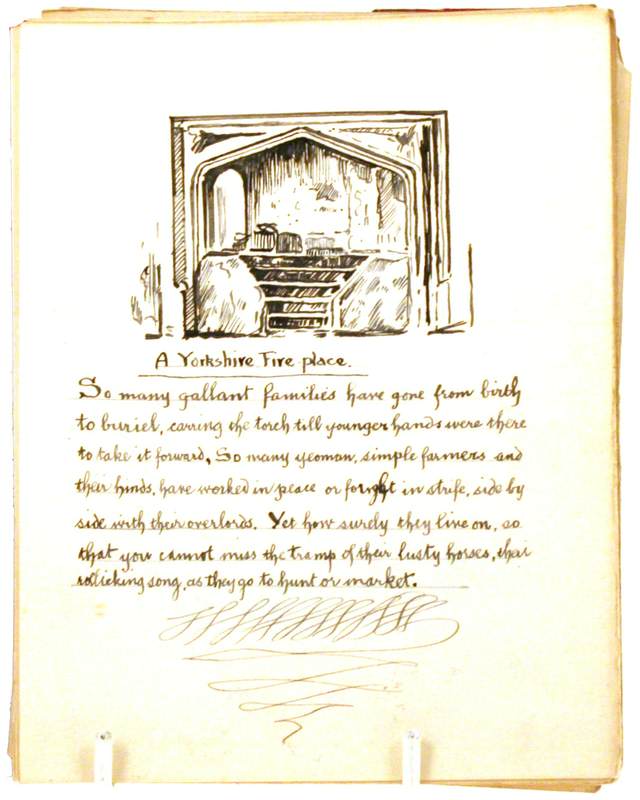 A Yorkshire Fire place.
So many gallant families have gone from birth
to buriel, carring the torch till younger hands were there
to take it forward, So many yeoman, simple farmers and
their hinds, have worked in peace or foright in strife, side by
side with their overlords. Yet how surely they live on, so
that you cannot miss the tramp of their lusty horses, their
rollicking song, as they go to hunt or market.